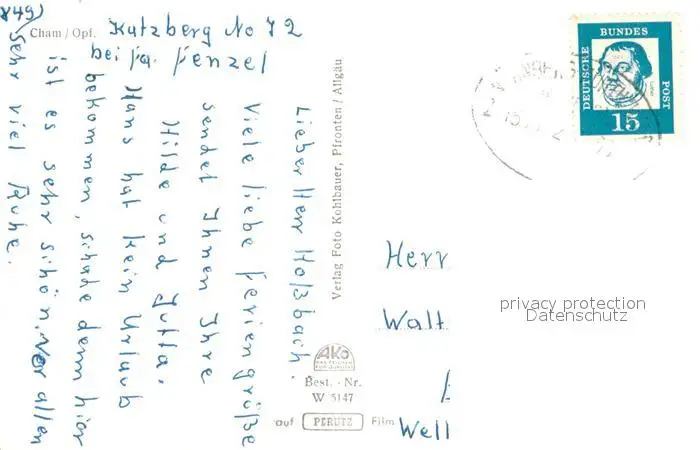 849)
Cham / Opf. Katzberg No 72
bei Fa. Fenzel
Lieber Herr Haßbach.
Viele liebe Feriengrüße
sendet Ihnen Ihre
Hilde und Jutta.
Hans hat kein Urlaub
bekommen, schade denn hier
ist es sehr schön. Vor allen
sehr viel Ruhe.
Verlag Foto Kohlbauer, Pfronten / Allgäu
AKO
Best. - Nr.
W 5147
auf PERUTZ Film
DEUTSCHE
BUNDES
POST
15
Herr
Walt
Well
privacy protection
Datenschutz